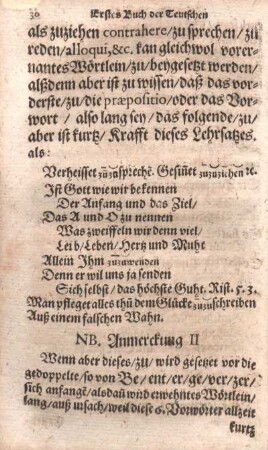 30 Erstes Buch der Teutschen
als zuziehen contrahere/ zu sprechen/ zu
reden/ alloqui, &c. kan gleichwol vorer-
nantes Wörtlein/ zu/ beygesetzt werden/
als denn aber ist zu wissen/ daß das vor-
derste/ zu/ die præpositio/ oder das Vor-
wort / also lang sey/ das folgende/ zu/
aber ist kurtz/ Krafft dieses Lehrsatzes.
als:
Verheisset zuzusprechē. Gesiñet zuzuziehen ꝛc.
Ist Gott wie wir bekennen
Der Anfang und das Ziel/
Das A und O zu nennen
Was zweiffeln wir denn viel/
Leib/ Leben/ Hertz und Muht
Allein Ihm zuzuwenden
Denn er wil uns ja senden
Sich selbst/ das höchste Guht. Rist. 5. 3.
Man pfleget alles thū dem Glücke zuzuschreiben
Auß einem falschen Wahn.
NB. Anmerckung II
Wenn aber dieses/ zu/ wird gesetzet vor die
gedoppelte/ so von Be/ ent/ er/ ge/ ver/ zer/
sich anfangē/ als daň wird erwehntes Wörtlein/
lang/ auß ursach/ weil diese 6. Vorwörter allzeit
kurtz